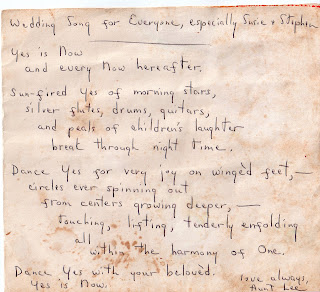 Wedding Song for Everyone, especially Susie & Stephen
Yes is Now
and every Now hereafter.
Sun-fired Yes of morning stars,
silver flutes, drums, guitars,
and peals of children's laughter
break through night time.
Dance Yes for very joy on wingèd feet,—
circles ever spinning out
from centers growing deeper,—
touching, lifting, tenderly enfolding
all
within the harmony of One.
Dance Yes with your beloved.
Yes is Now.
Love always,
Aunt Lee